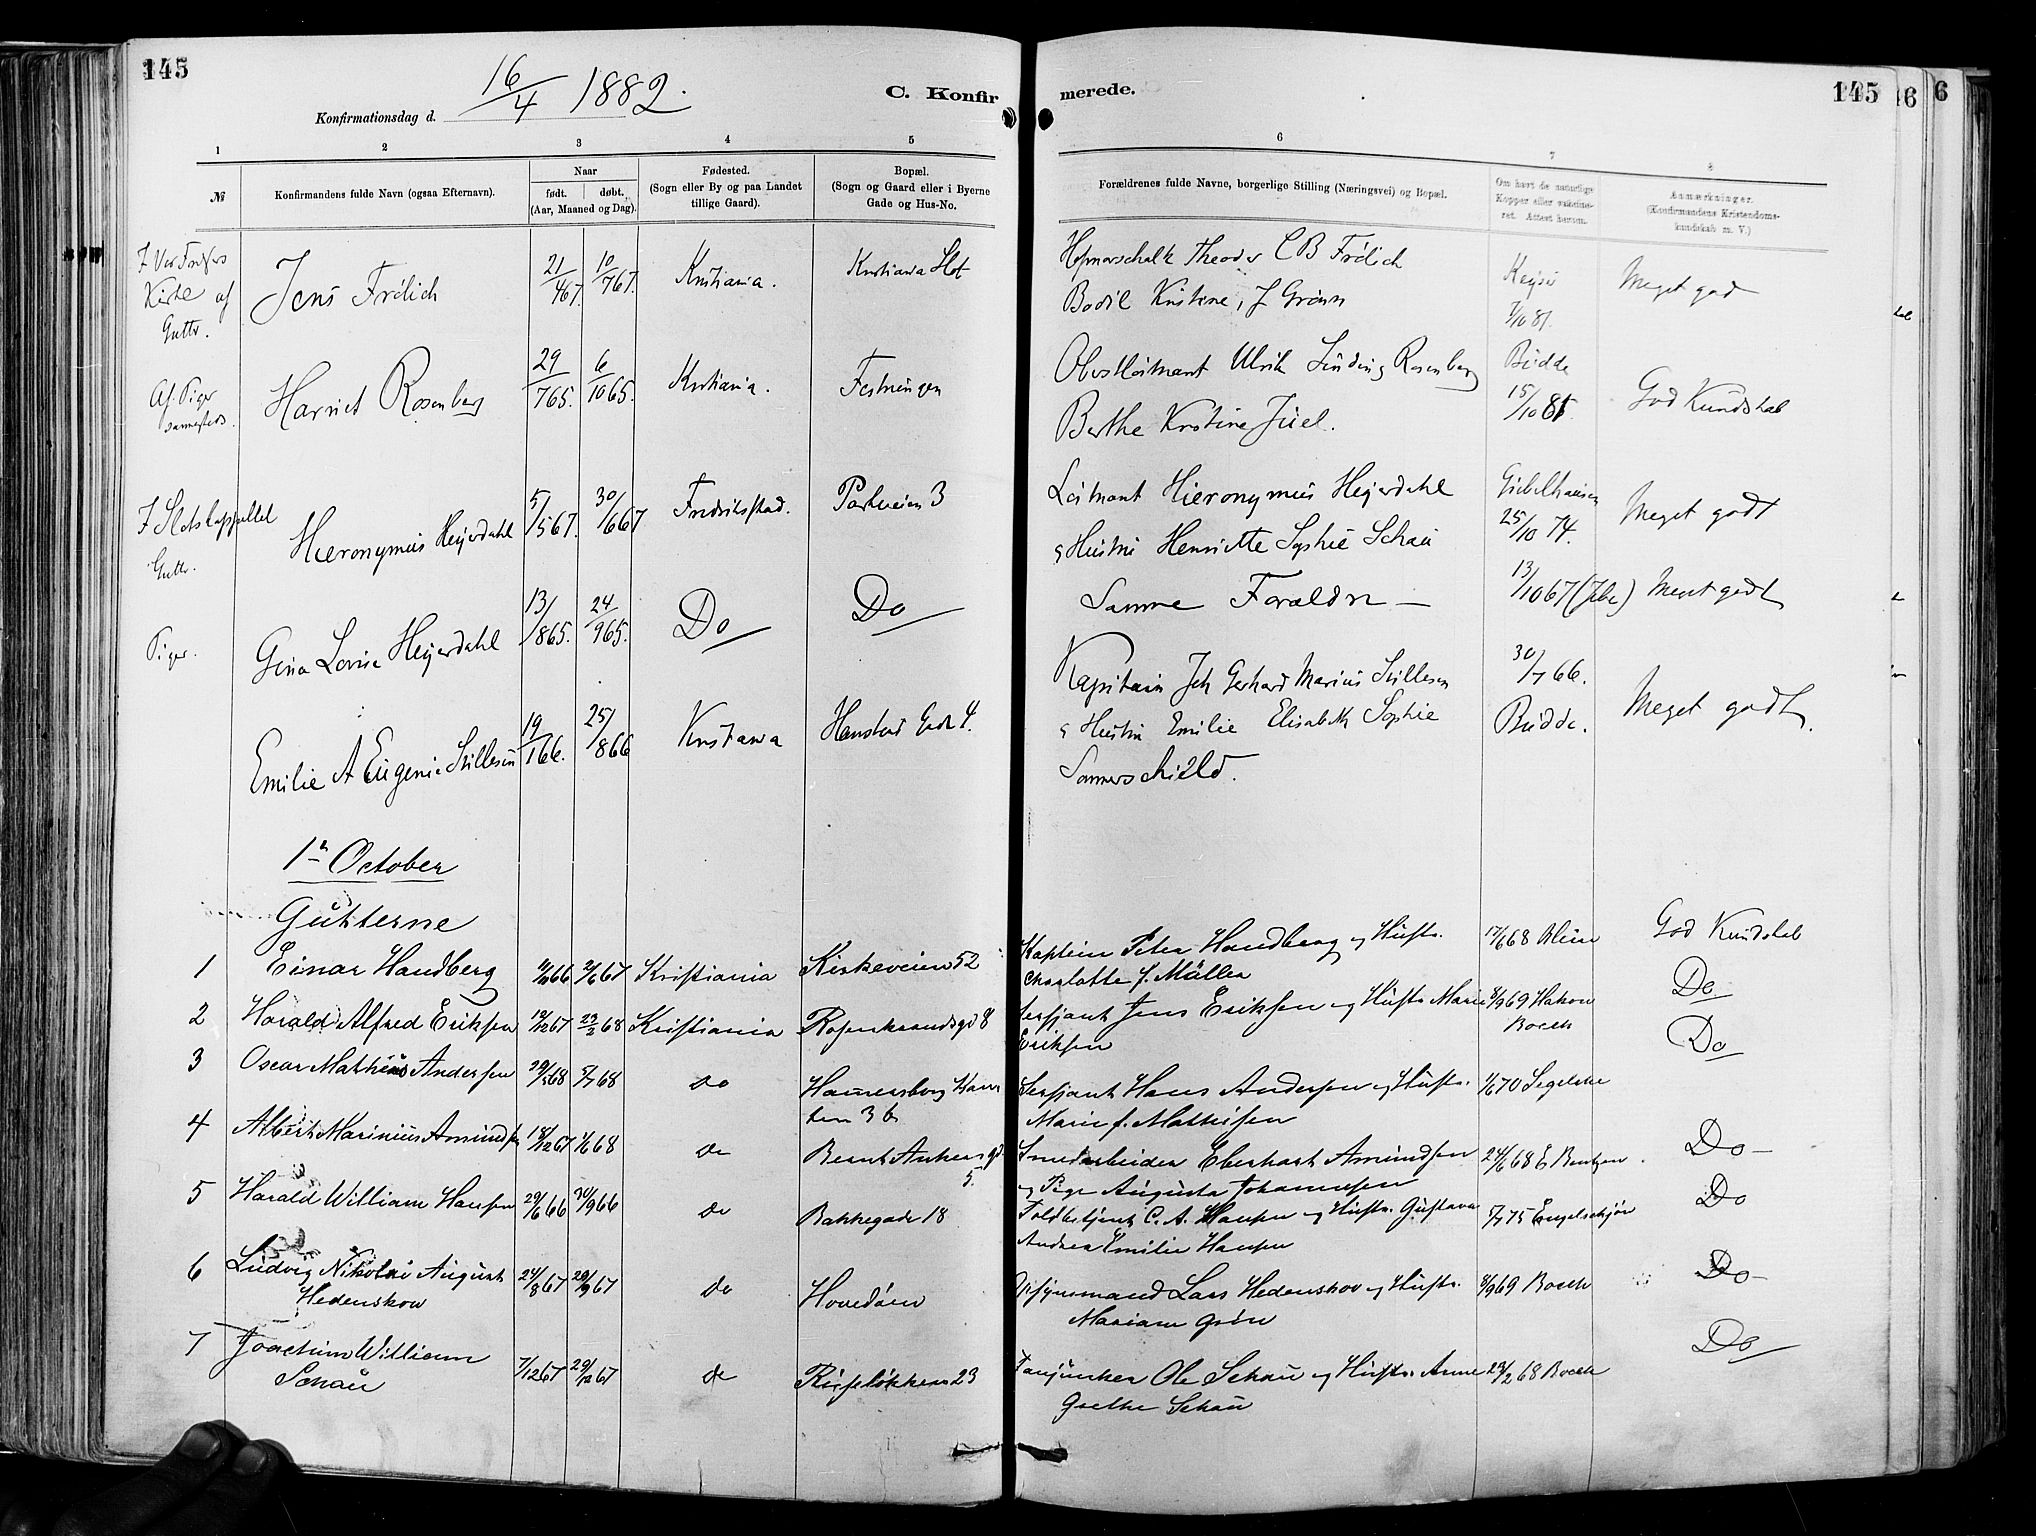 145
Konfirmationsdag d. 16/4 1882.
C. Konfir
merede.
145
6
6
1
2
3
4
5
6
7
8
№
Konfirmandens fulde Navn (ogsaa Efternavn).
Naar
født. døbt.
(Aar, Maaned og Dag).
Fødested.
(Sogn eller By og paa Landet
tillige Gaard).
Bopæl.
(Sogn og Gaard eller i Byerne
Gade og Hus-No.
Forældrenes fulde Navne, borgerlige Stilling (Næringsvei) og Bopæl.
Om havt de naturlige
Kopper eller vaccine-
ret. Attest herom.
Anmærkninger.
(Konfirmandens Kristendoms-
kundskab m. V.)
I Vor Frelsers
Kirke af
Gutter.
Jens Frölich
21/467. 10/767.
Kristiania.
Kristiania Slot
Hofmarschalk Theodor C B Frölich
Bodil Kristine, f Grönn
Keyser
7/10 81.
Meget god
Af Piger
sammesteds.
Harriet Rosenberg
29/765. 6/1065.
Kristiania.
Festningen
Oberstløitnant Ulrik Sinding Rosenberg
Berthe Kristine Juel.
Budde
15/10 81
God Kundskab
I Slotskappellet
Gutter.
Hieronymus Heyerdahl
5/567. 30/667
Fredrikstad.
Parkveien 3
Löitnant Hieronymus Heyerdahl
g Hustru Henriette Sophie Schau
25/10 74.
Meget godt
Piger.
Gina Lovise Heyerdahl
13/865. 24/965.
Do
Do
Samme Forældre —
13/1067
Meget godt
Emilie A Eugenie Stillesen
19/166. 25/866
Kristiania
Gade 4.
Kapitain Joh Gerhard Marius Stillesen
g Hustru Emilie Elisabeth Sophie
Sommerschield.
30/7 66.
Budde.
Meget godt.
1ᵉ October
Gutterne
1 Einar Handberg
2/667 Kristiania Kirkeveien 52
Kaptein Peter Handberg og Hustr.
Charlotte f. Müller
17/668
God Kundskab
2 Harald Alfred Eriksen
12/1267 23/268 Kristiania Rosenkrandsgd 8
Sersjant Jens Eriksen og Hustr Marie
Eriksen
8/969 Hakon
Boeck
Do
3 Oscar Mathias Andersen
29/368 5/768 do
Hamersborg
36
Sersjant Hans Andersen og Hustr.
Marie f. Mathisen
1/670 Segelcke
Do
4 Albert Marinius Amundsen
18/1267 1/668 do
Bernt Ankers gd
5.
Smedarbeider Eberhart Amundsen
og Pige Augusta Johannesen
24/668 E Bentzen
Do —
5 Harald William Hansen
29/666 30/966 do Bakkegade 18
Toldbetjent C. A. Hansen og Hustr. Gustava
Andrea Emilie Hansen
5/775 Engelschjön
Do
6 Ludvig Nikolai August
Hedenskow
24/867 29/967 do Hovedöen
Opsynsmand Lars Hedenskov og Hustr.
Mariane Grön
8/969 Boeck
Do —
7 Joachim William
Schau
7/1267 29/1267 do Ruselökken 23
Fanjunker Ole Schau og Hustr. Anne
Grethe Schau
23/268 Boeck
Do